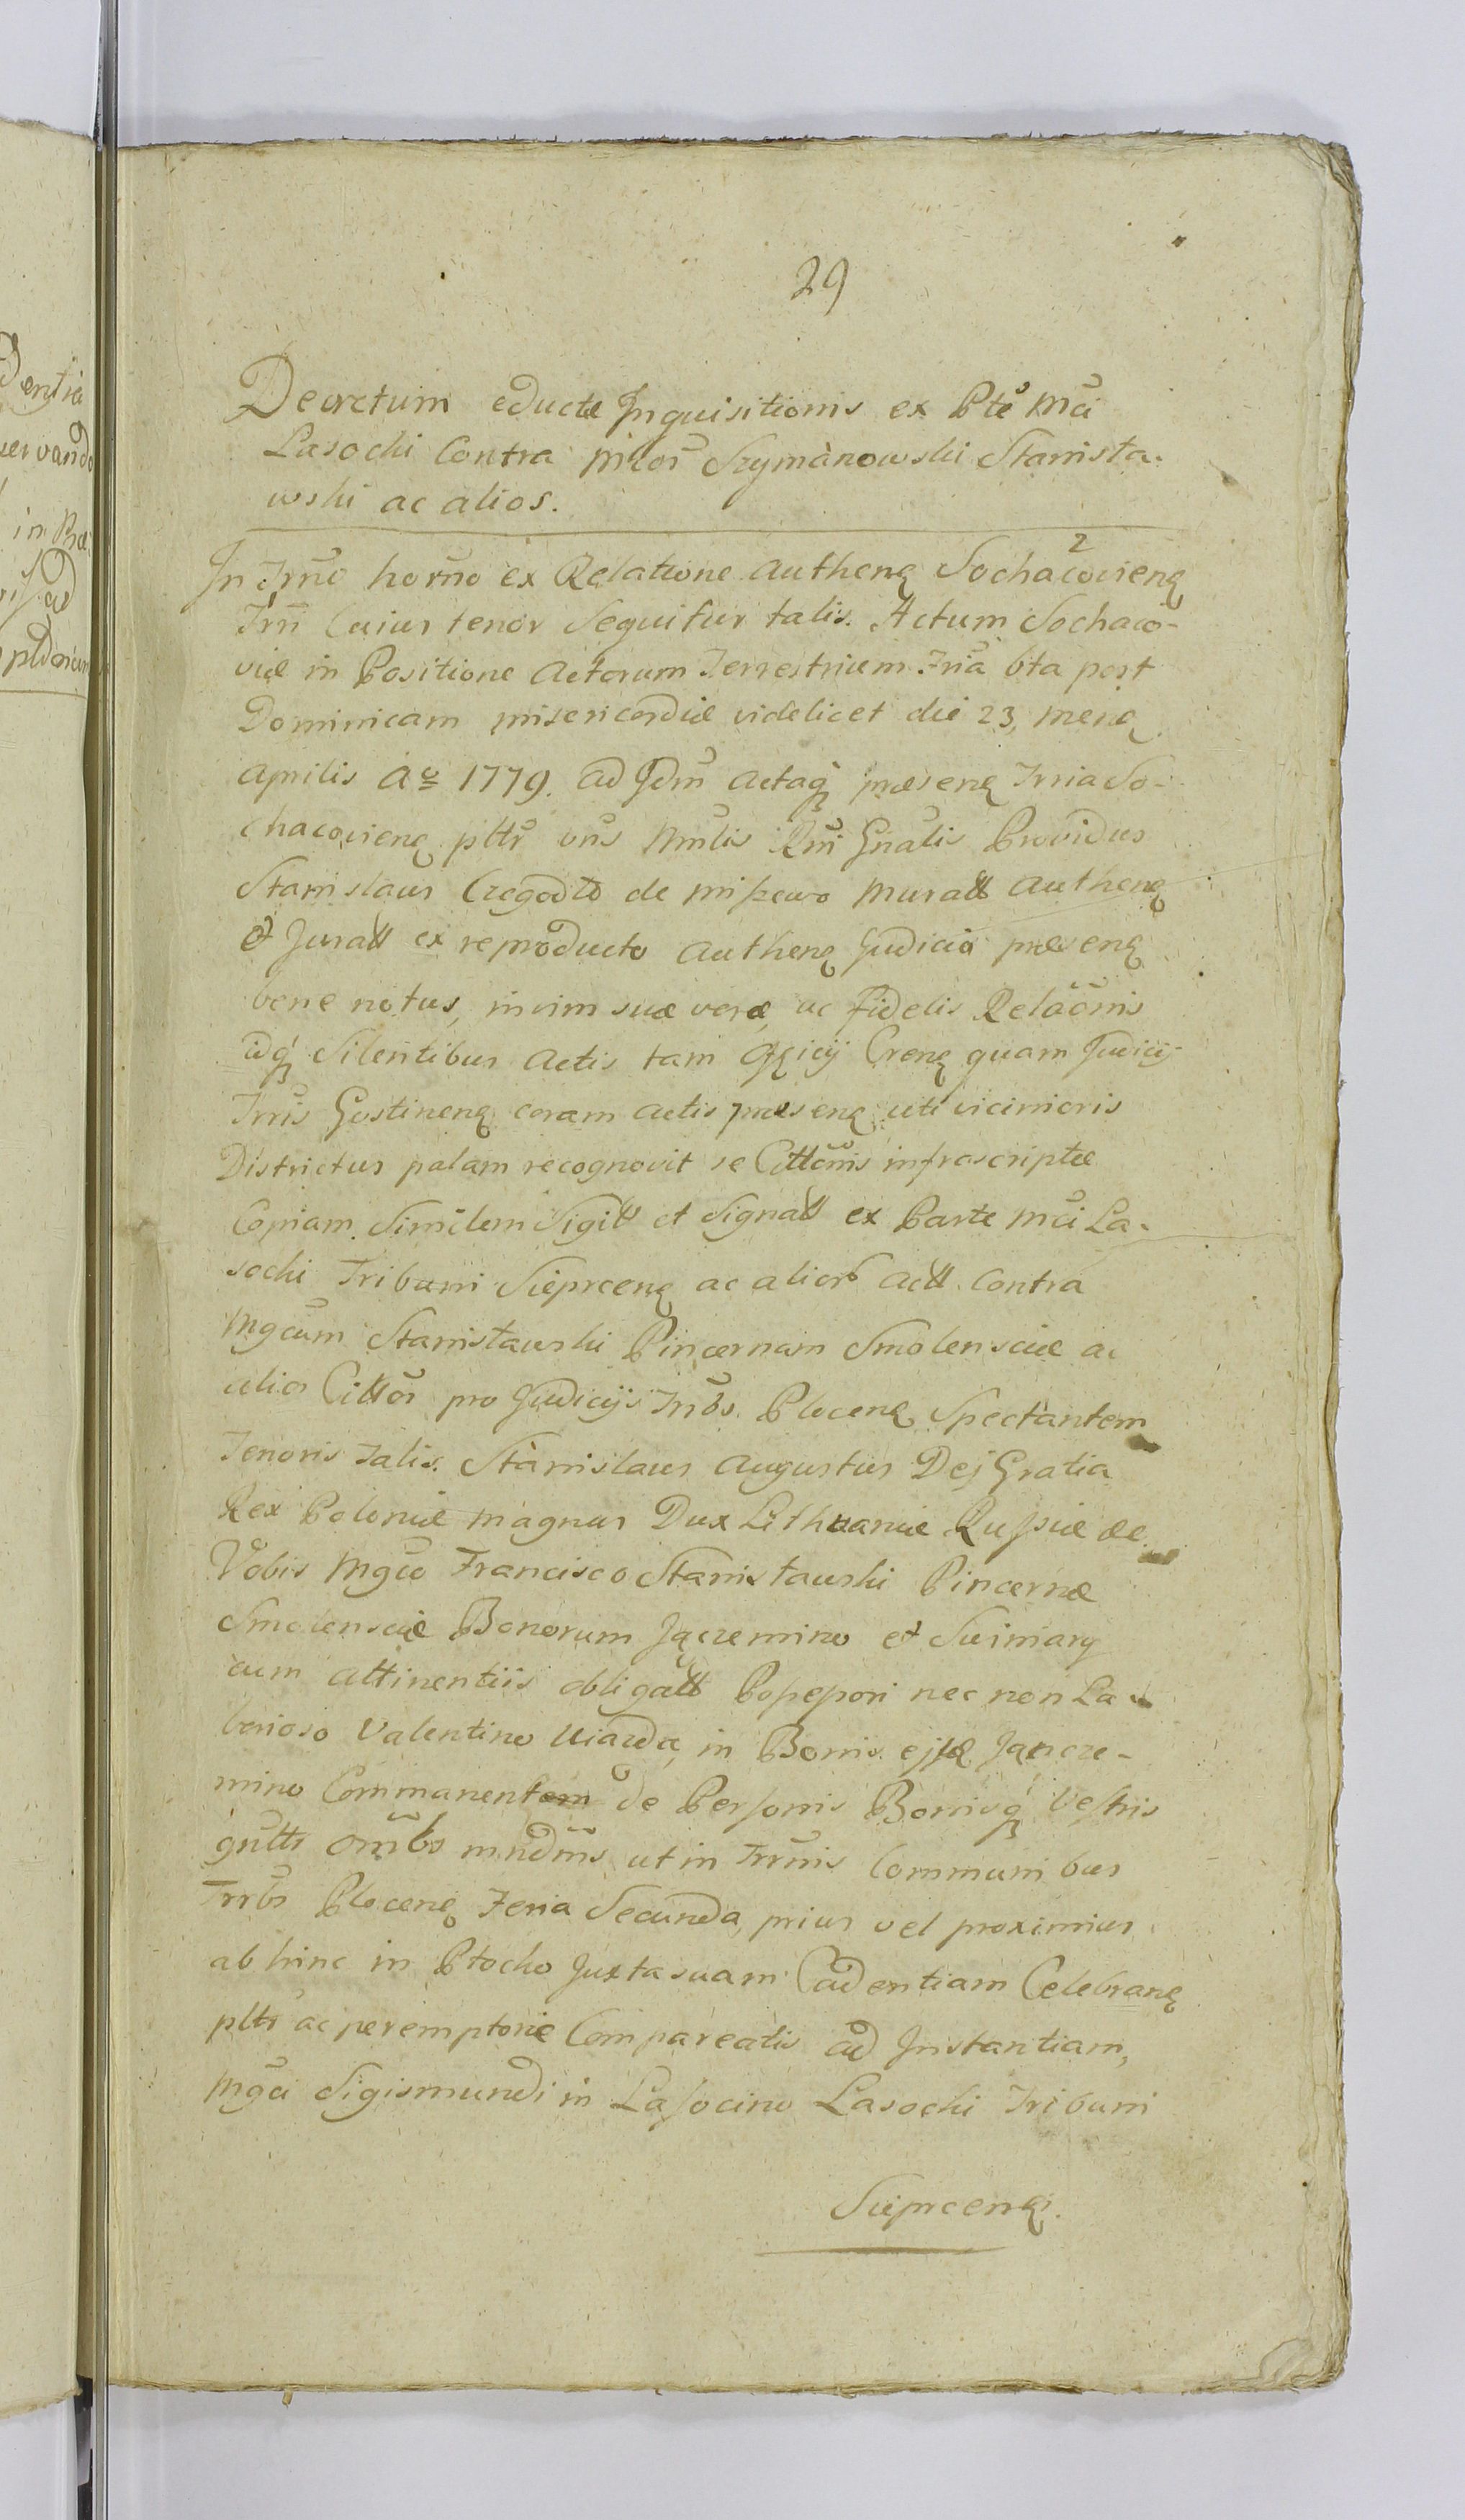 29
Decretum eductæ Inquisitionis ex Pte Mci
Lasocki Contra Mcos Szymanowski Stanisła-
wski ac alios.
2
In Trno horno ex Relatione authenq Sochacovienq
Trri Cuius tenor Sequitur talis. Actum Sochaco-
viæ in Positione Actorum Terrestrium Fria 6ta post
Dominicam misericordiæ videlicet die 23, menq
Aprilis Ao 1779. ad Jdm Actaq præsenq Trria So-
chacovienq pltr vns Mnlis Rni Gnalis Providus
Stanislaus de Miszewo Muratt authenq
et Juratt ex reproducto authenq Judicio præsenq
bene notus, in vim suæ veræ, ac fidelis Relaonis
idq Silentibus Actis tam Officij Crenq quam Judicij
Trris Gostinenq coram actis præsenq uti vicinioris
Districtus palam recognovit se Cittonis infrascriptæ
Copiam Similem Sigill et Signatt ex Parte Mci La-
socki Tribuni Sieprcenq ac alior Actt Contra
Mgcum Stanisławski Pincernam Smolensciæ ac
alios Cittos pro Judicijs Trrbs Plocenq Spectantem
Tenoris Talis. Stanislaus Augustus Dei Gratia
Rex Poloniæ Magnus Dux Lithvaniæ Russiæ &c.
Vobis Mgco Francisco Stanisławski Pincernæ
Smolensciæ Bonorum Jączemino et Swiniary
cum attinentiis obligatt Possessori nec non La-
borioso Valentino Uiazda, in Bonis ejsd Jącze-
mino Commanen de Personis Bonisq Vestris
gnltr omnibs mndms ut in Trrnis Communibus
Trrbs Plocenq Feria Secunda, prius vel proximius
abhinc in Płocko Juxta suam Cadentiam Celebranq
pltr ac peremptorie Compareatis ad Instantiam,
Mgci Sigismundi in Lasocino Lasocki Tribuni
Sieprcenq.